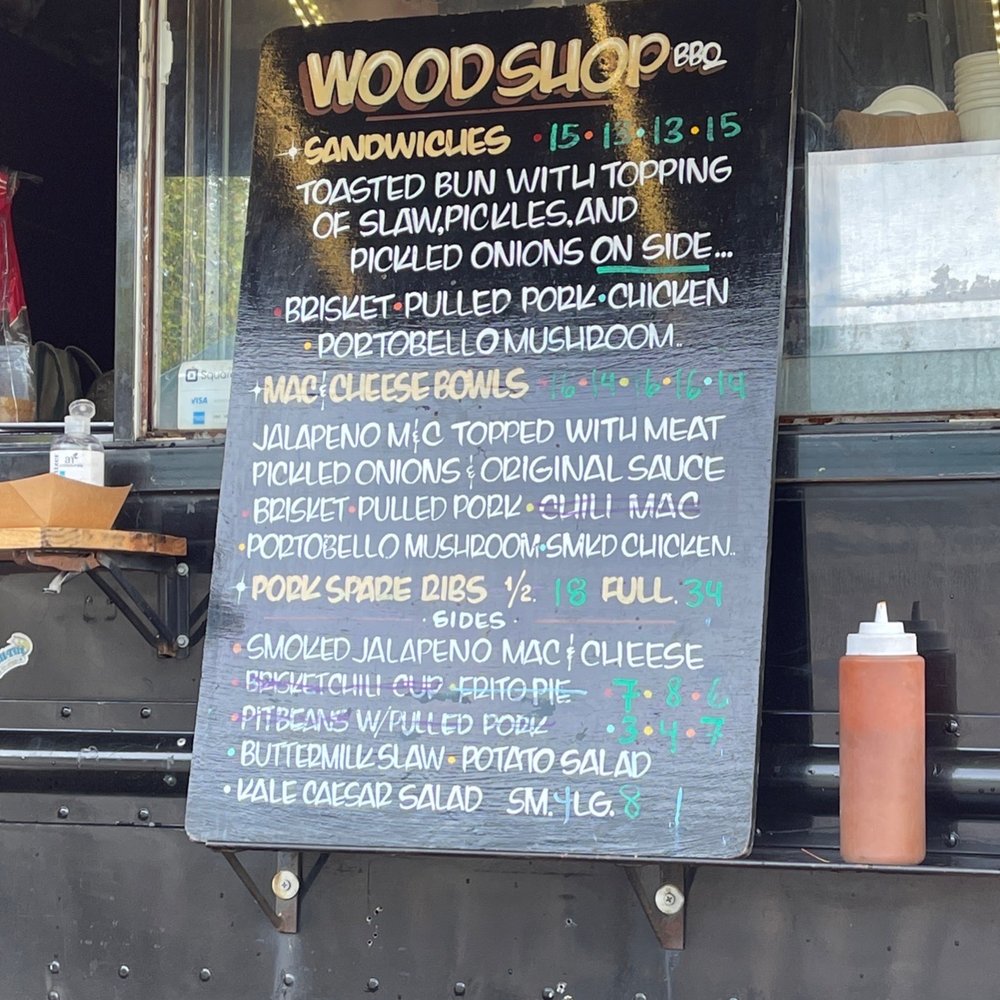 WOOD SHOP BBQ
SANDWICHES • 15 • 13 • 13 • 15
TOASTED BUN WITH TOPPING
OF SLAW, PICKLES, AND
PICKLED ONIONS ON SIDE...
• BRISKET • PULLED PORK • CHICKEN
• PORTOBELLO MUSHROOM..
MAC & CHEESE BOWLS • 16 • 14 • 16 • 16 •
JALAPENO M&C TOPPED WITH MEAT
PICKLED ONIONS & ORIGINAL SAUCE
• BRISKET • PULLED PORK • CHILI MAC
• PORTOBELLO MUSHROOM • SMKD CHICKEN..
PORK SPARE RIBS 1/2. 18 FULL. 34
• SIDES •
• SMOKED JALAPENO MAC & CHEESE
• BRISKET CHILI CUP • FRITO PIE • 7 • 8 • 6
• PIT BEANS W/PULLED PORK • 3 • 4 • 7
• BUTTERMILK SLAW • POTATO SALAD
• KALE CAESAR SALAD SM. 4 LG. 8
Square
VISA
art